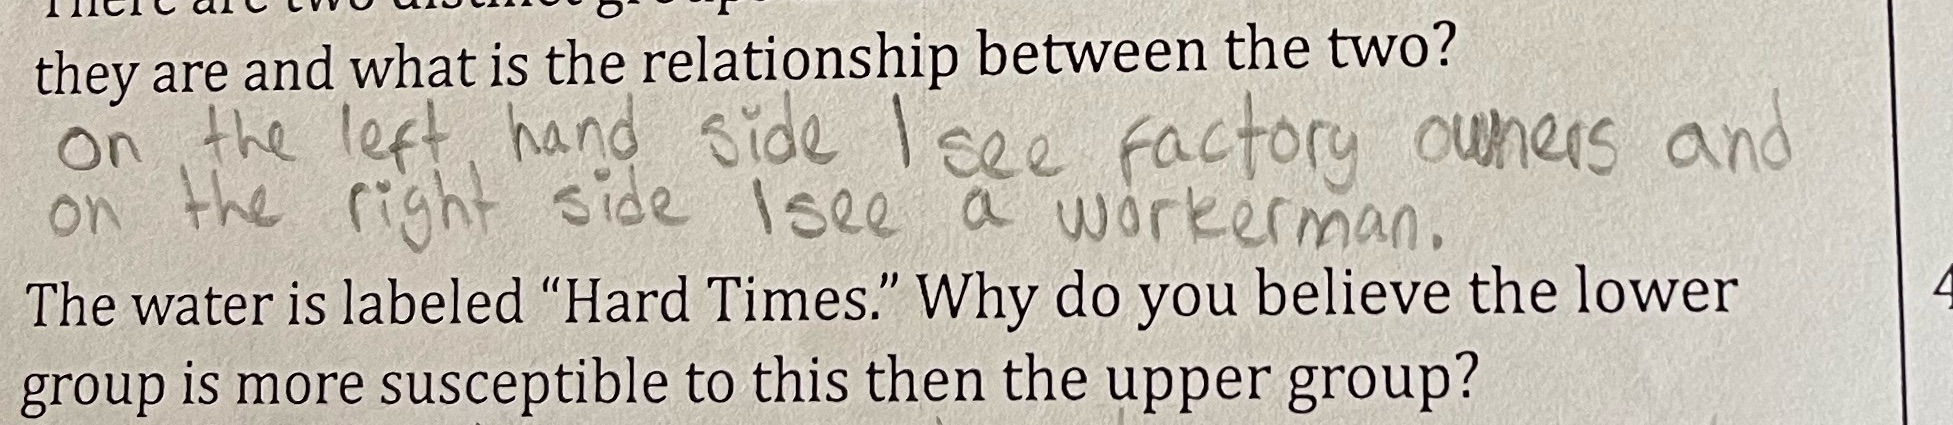 There are two distinct groups
they are and what is the relationship between the two?
on the left hand side I see factory owners and
on the right side I see a workerman.
The water is labeled “Hard Times.” Why do you believe the lower
group is more susceptible to this then the upper group?
4